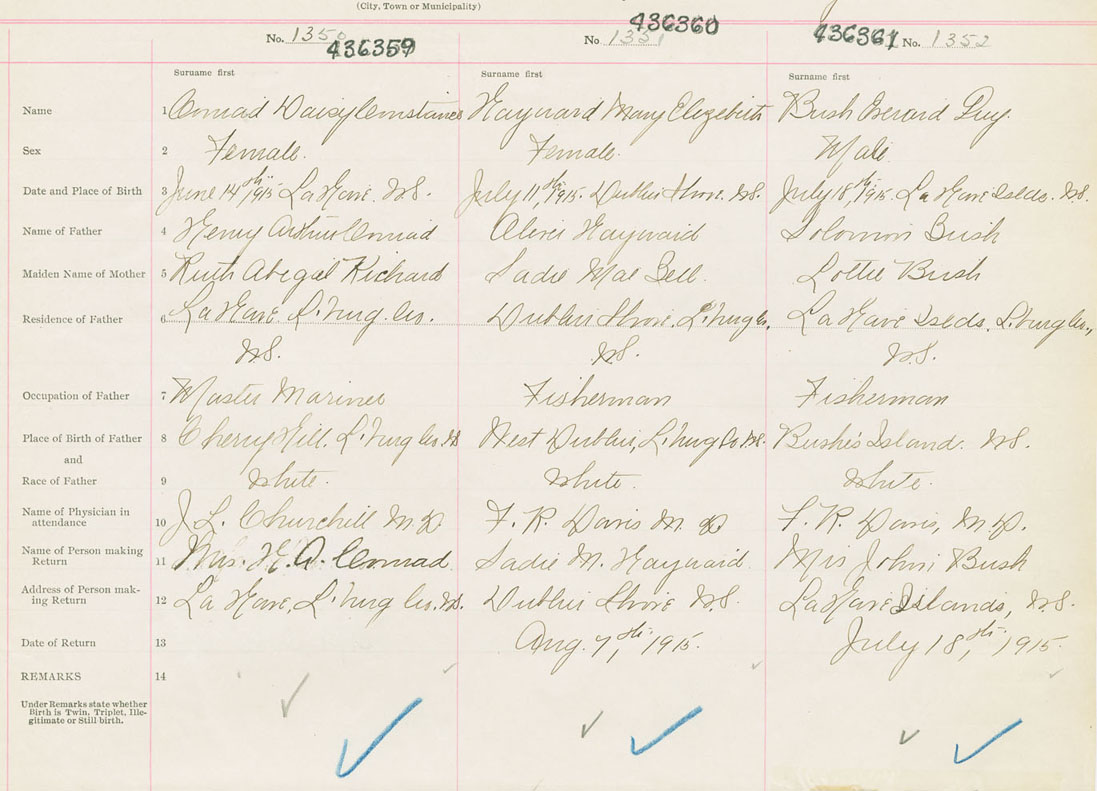 (City, Town or Municipality)
No. 1350 436359 No 1351 436360 436361 No. 1352
Surname first Surname first Surname first
Name 1 Conrad Daisy Constance Hayward Mary Elizebeth Bush Evrard Guy.
Sex 2 Female. Female. Male
Date and Place of Birth 3 June 14th, 1915 La Have. N.S. July 11th, 1915. Dublin Shore. N.S. July 18th, 1915. La Have Islds. N.S.
Name of Father 4 Henry Arthur Conrad Hayward Solomon Bush
Maiden Name of Mother 5 Ruth Abegail Richard Sadie Mae Bell. Lottie Bush
Residence of Father 6 La Have. L'burg. Co. Dublin Shore. L'burg Co, La Have Islds. L'burg Co.,
N.S. N.S. N.S.
Occupation of Father 7 Master Mariner Fisherman Fisherman
Place of Birth of Father 8 Cherry Hill. L'burg Co. N.S West Dublin, L'burg Co. N.S. Bushe's Island. N.S.
and
Race of Father 9 White. White. White.
Name of Physician in
attendance 10 J. L. Churchill M.D. F. R. Davis M.D. F. R. Davis, M.D.
Name of Person making
Return 11 Mrs. H. A. Conrad Sadie M. Hayward. Mrs John Bush
Address of Person mak-
ing Return 12 La Have, L'burg Co. N.S. Dublin Shore N.S. La Have Islands, N.S.
Date of Return 13 Aug. 7th, 1915. July 18th, 1915.
REMARKS 14
Under Remarks state whether
Birth is Twin, Triplet, Ille-
gitimate or Still-birth.